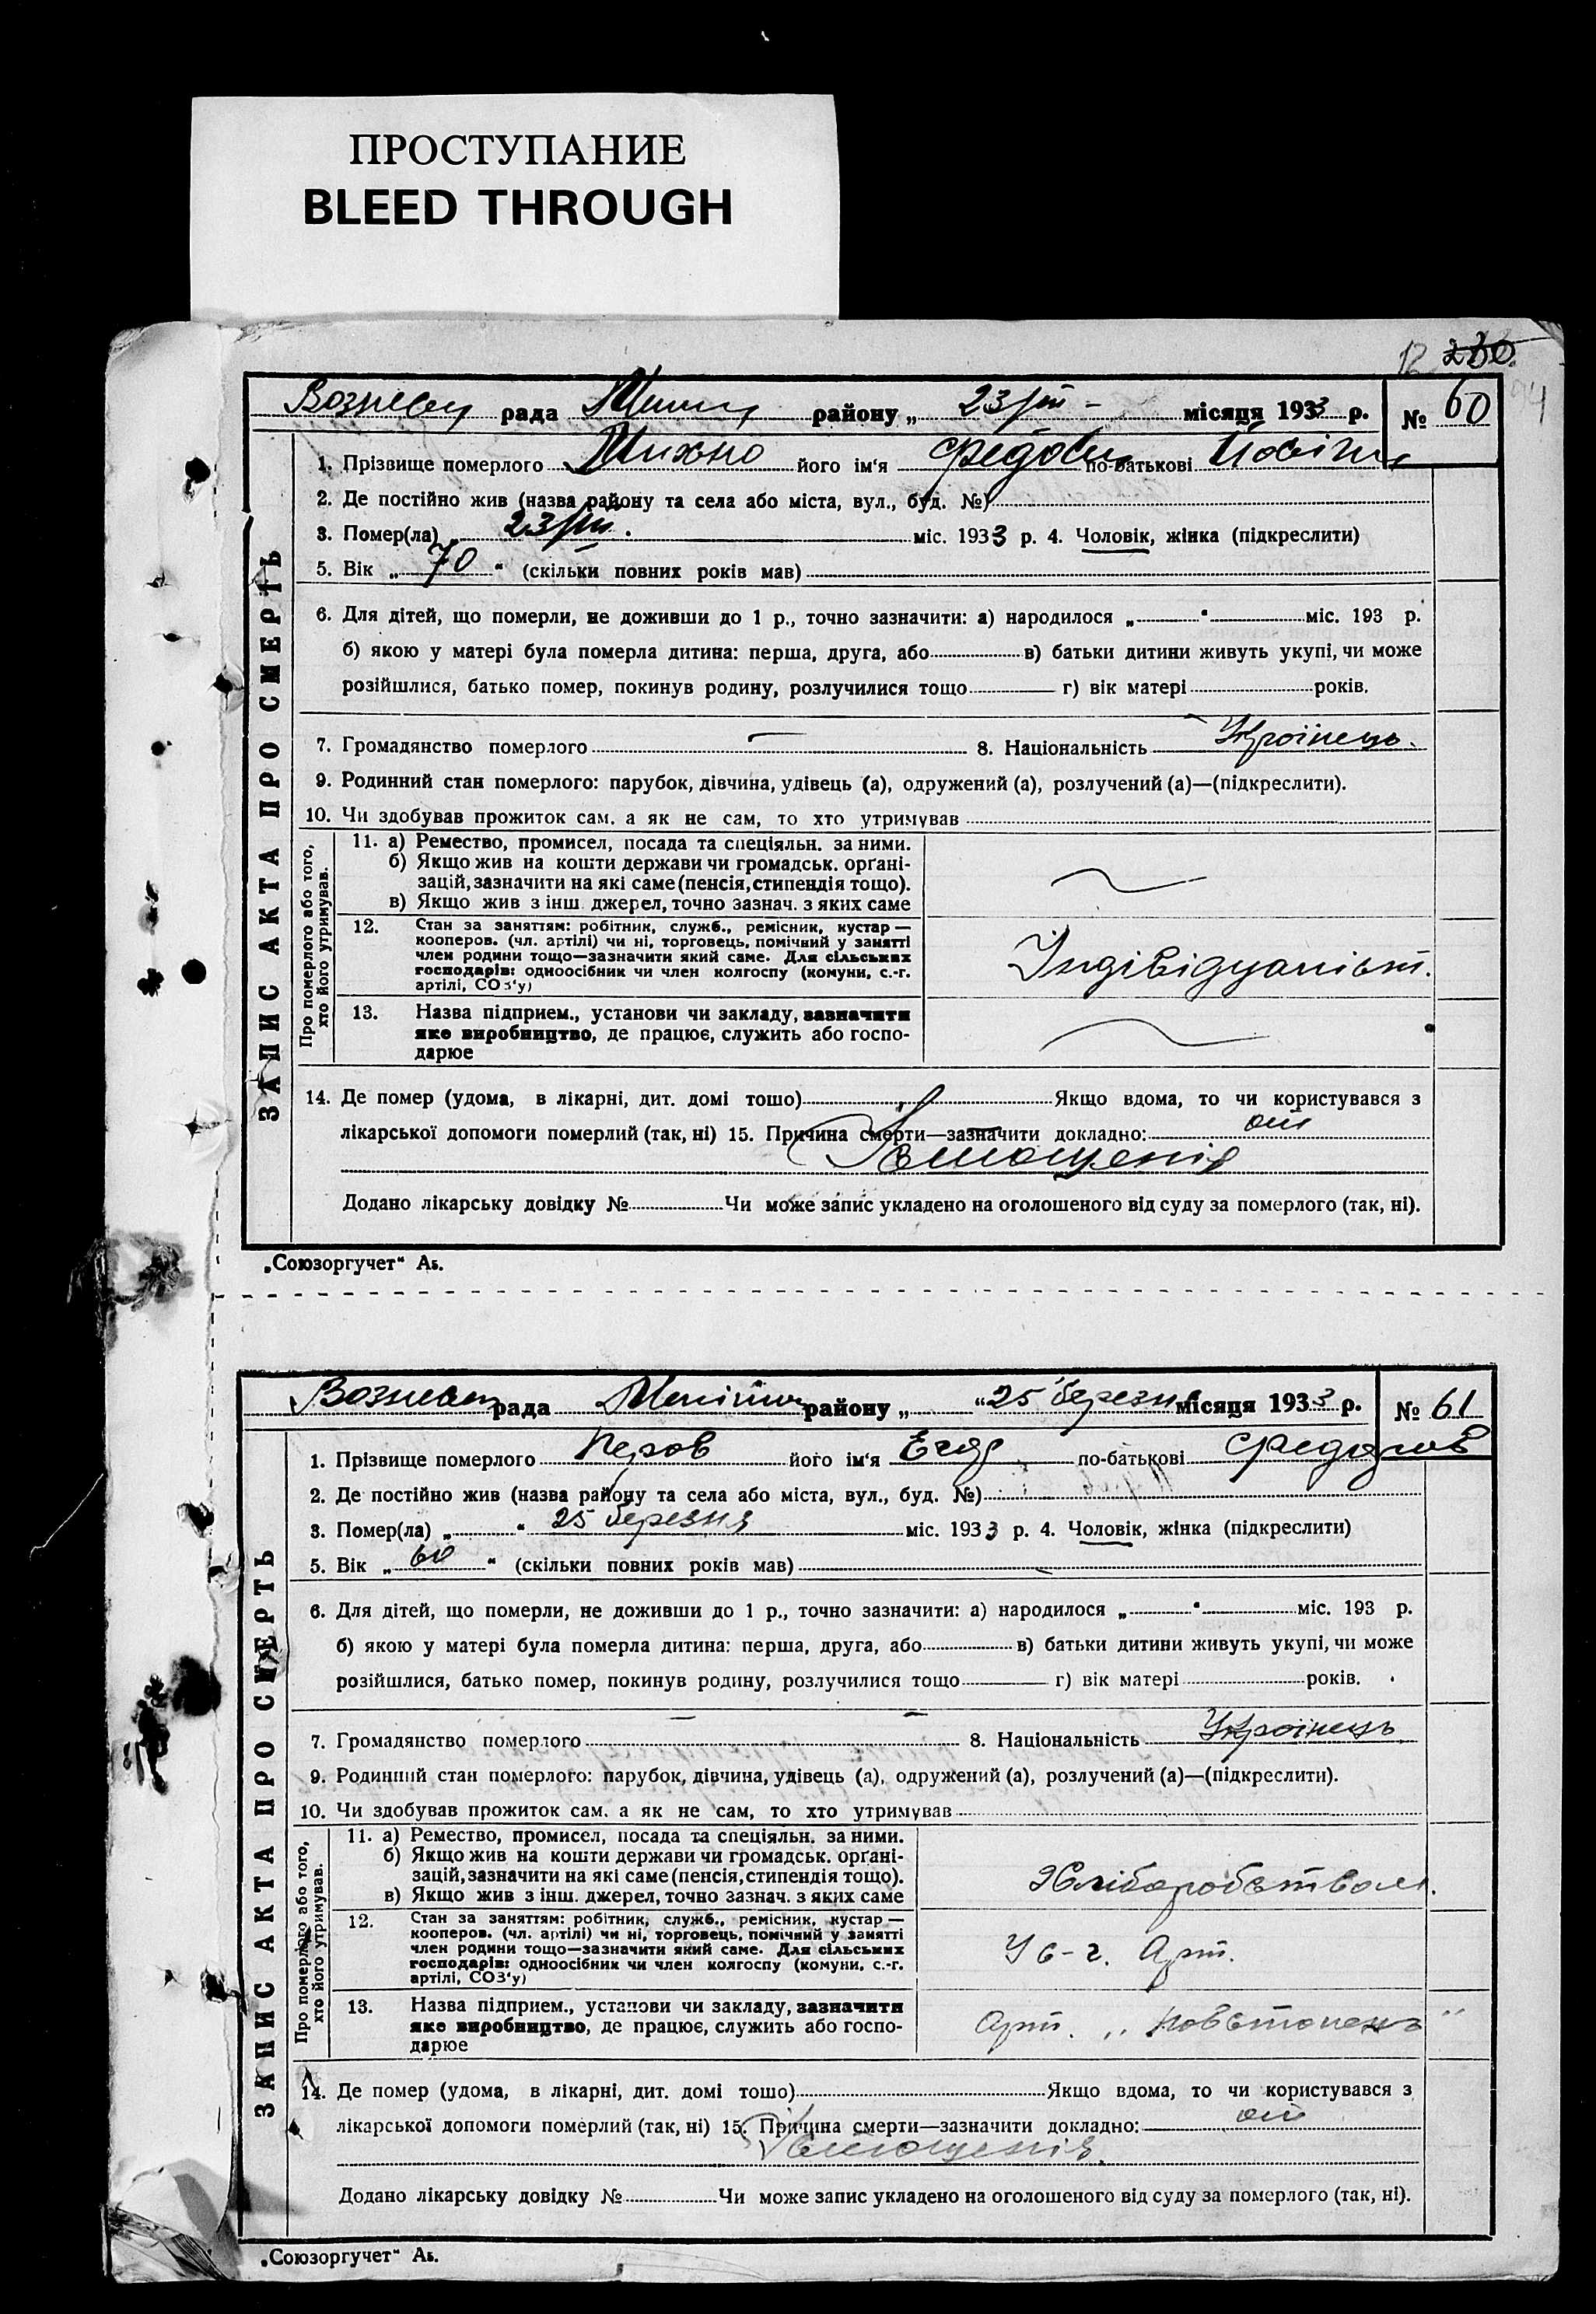 ПРОСТУПАНИЕ
BLEED THROUGH
12 230
94
рада району „ 23/III - місяця 1933 р. № 60
1. Прізвище померлого Михно його ім'я по-батькові
2. Де постійно жив (назва району та села або міста, вул., буд. №)
3. Помер(ла) „ 23/III. міс. 1933 р. 4. Чоловік, жінка (підкреслити)
5. Вік „ 70 “ (скільки повних років мав)
6. Для дітей, що померли, не доживши до 1 р., точно зазначити: а) народилося „ “ міс. 193 р.
б) якою у матері була померла дитина: перша, друга, або в) батьки дитини живуть укупі, чи може
розійшлися, батько помер, покинув родину, розлучилися тощо г) вік матері років.
7. Громадянство померлого — 8. Національність Україінець.
9. Родинний стан померлого: парубок, дівчина, удівець (а), одружений (а), розлучений (а)—(підкреслити).
10. Чи здобував прожиток сам. а як не сам, то хто утримував
ЗАПИС АКТА ПРО СМЕРТЬ
Про померлого або того,
хто його утримував.
11. а) Ремество, промисел, посада та спеціяльн. за ними.
б) Якщо жив на кошти держави чи громадськ. орґані-
зацій, зазначити на які саме (пенсія, стипендія тощо).
в) Якщо жив з інш. джерел, точно зазнач. з яких саме
12. Стан за заняттям: робітник, служб., ремісник, кустар —
кооперов. (чл. артілі) чи ні, торговець, помічний у занятті
член родини тощо—зазначити який саме. Для сільських
господарів: одноосібник чи член колгоспу (комуни, с.-г.
артілі, СОЗ'у)
Індівідуаліст.
13. Назва підприєм., установи чи закладу, зазначити
яке виробництво, де працює, служить або госпо-
дарює
14. Де помер (удома, в лікарні, дит. домі тощо) Якщо вдома, то чи користувався з
лікарської допомоги померлий (так, ні) 15. Причина смерти—зазначити докладно: от
істощенія
Додано лікарську довідку № Чи може запис укладено на оголошеного від суду за померлого (так, ні).
„Союзоргучет“ А5.
рада району „ “ 25 березня місяця 1933 р. № 61
1. Прізвище померлого його ім'я Егор по-батькові
2. Де постійно жив (назва району та села або міста, вул., буд. №)
3. Помер(ла) „ “ 25 березня міс. 1933 р. 4. Чоловік, жінка (підкреслити)
5. Вік „ 60 “ (скільки повних років мав)
6. Для дітей, що померли, не доживши до 1 р., точно зазначити: а) народилося „ “ міс. 193 р.
б) якою у матері була померла дитина: перша, друга, або в) батьки дитини живуть укупі, чи може
розійшлися, батько помер, покинув родину, розлучилися тощо г) вік матері років.
7. Громадянство померлого 8. Національність Україінець
9. Родинний стан померлого: парубок, дівчина, удівець (а), одружений (а), розлучений (а)—(підкреслити).
10. Чи здобував прожиток сам. а як не сам, то хто утримував
ЗАПИС АКТА ПРО СМЕРТЬ
Про померлого або того,
хто його утримував.
11. а) Ремество, промисел, посада та спеціяльн. за ними.
б) Якщо жив на кошти держави чи громадськ. орґані-
зацій, зазначити на які саме (пенсія, стипендія тощо).
в) Якщо жив з інш. джерел, точно зазнач. з яких саме
Хліборобством.
12. Стан за заняттям: робітник, служб., ремісник, кустар —
кооперов. (чл. артілі) чи ні, торговець, помічний у занятті
член родини тощо—зазначити який саме. Для сільських
господарів: одноосібник чи член колгоспу (комуни, с.-г.
артілі, СОЗ'у)
У с-г. Арт.
13. Назва підприєм., установи чи закладу, зазначити
яке виробництво, де працює, служить або госпо-
дарює
Арт.
14. Де помер (удома, в лікарні, дит. домі тощо) Якщо вдома, то чи користувався з
лікарської допомоги померлий (так, ні) 15. Причина смерти—зазначити докладно: от
істощенія.
Додано лікарську довідку № Чи може запис укладено на оголошеного від суду за померлого (так, ні).
„Союзоргучет“ А5.